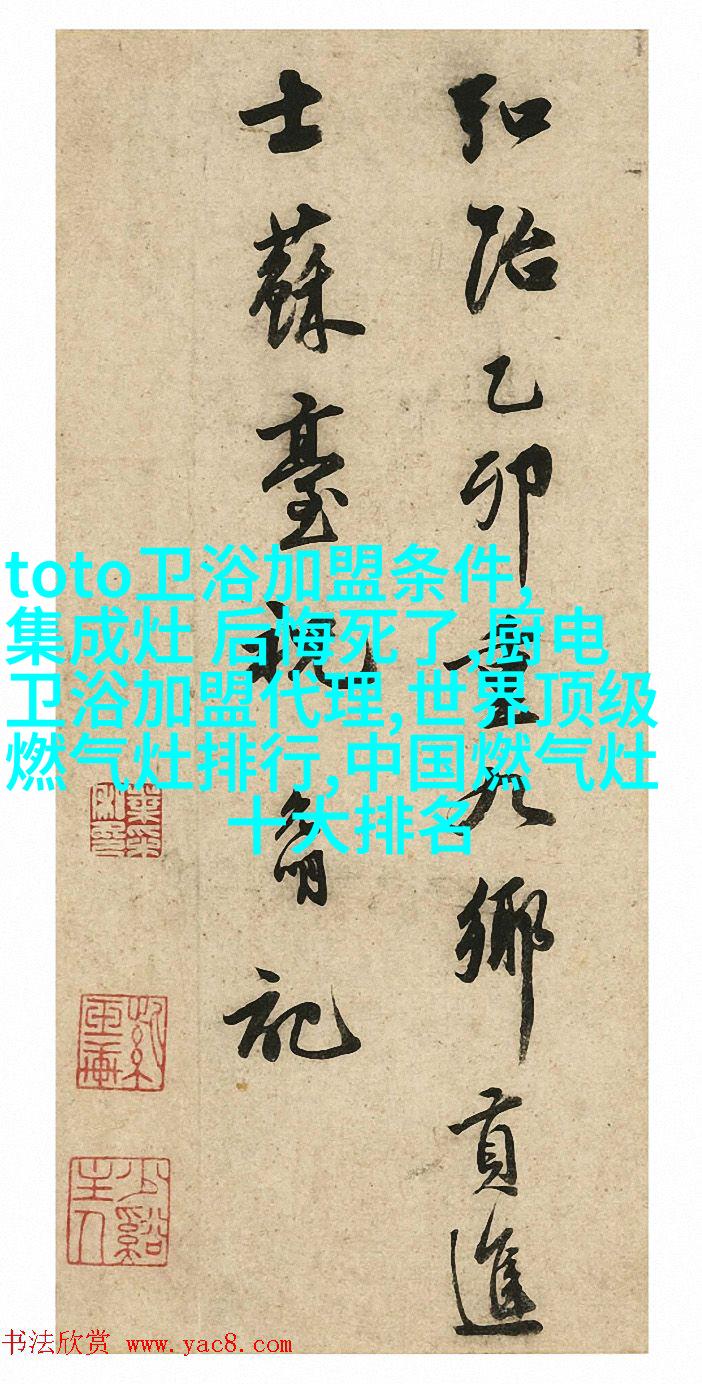 弘治乙卯重九鄉貢進
士蘇臺祝允明記
toto卫浴加盟条件,
集成灶 后悔死了,厨电
卫浴加盟代理,世界顶级
燃气灶排行,中国燃气灶
十大排名
少谿主人
书法欣赏 www.yac8.com